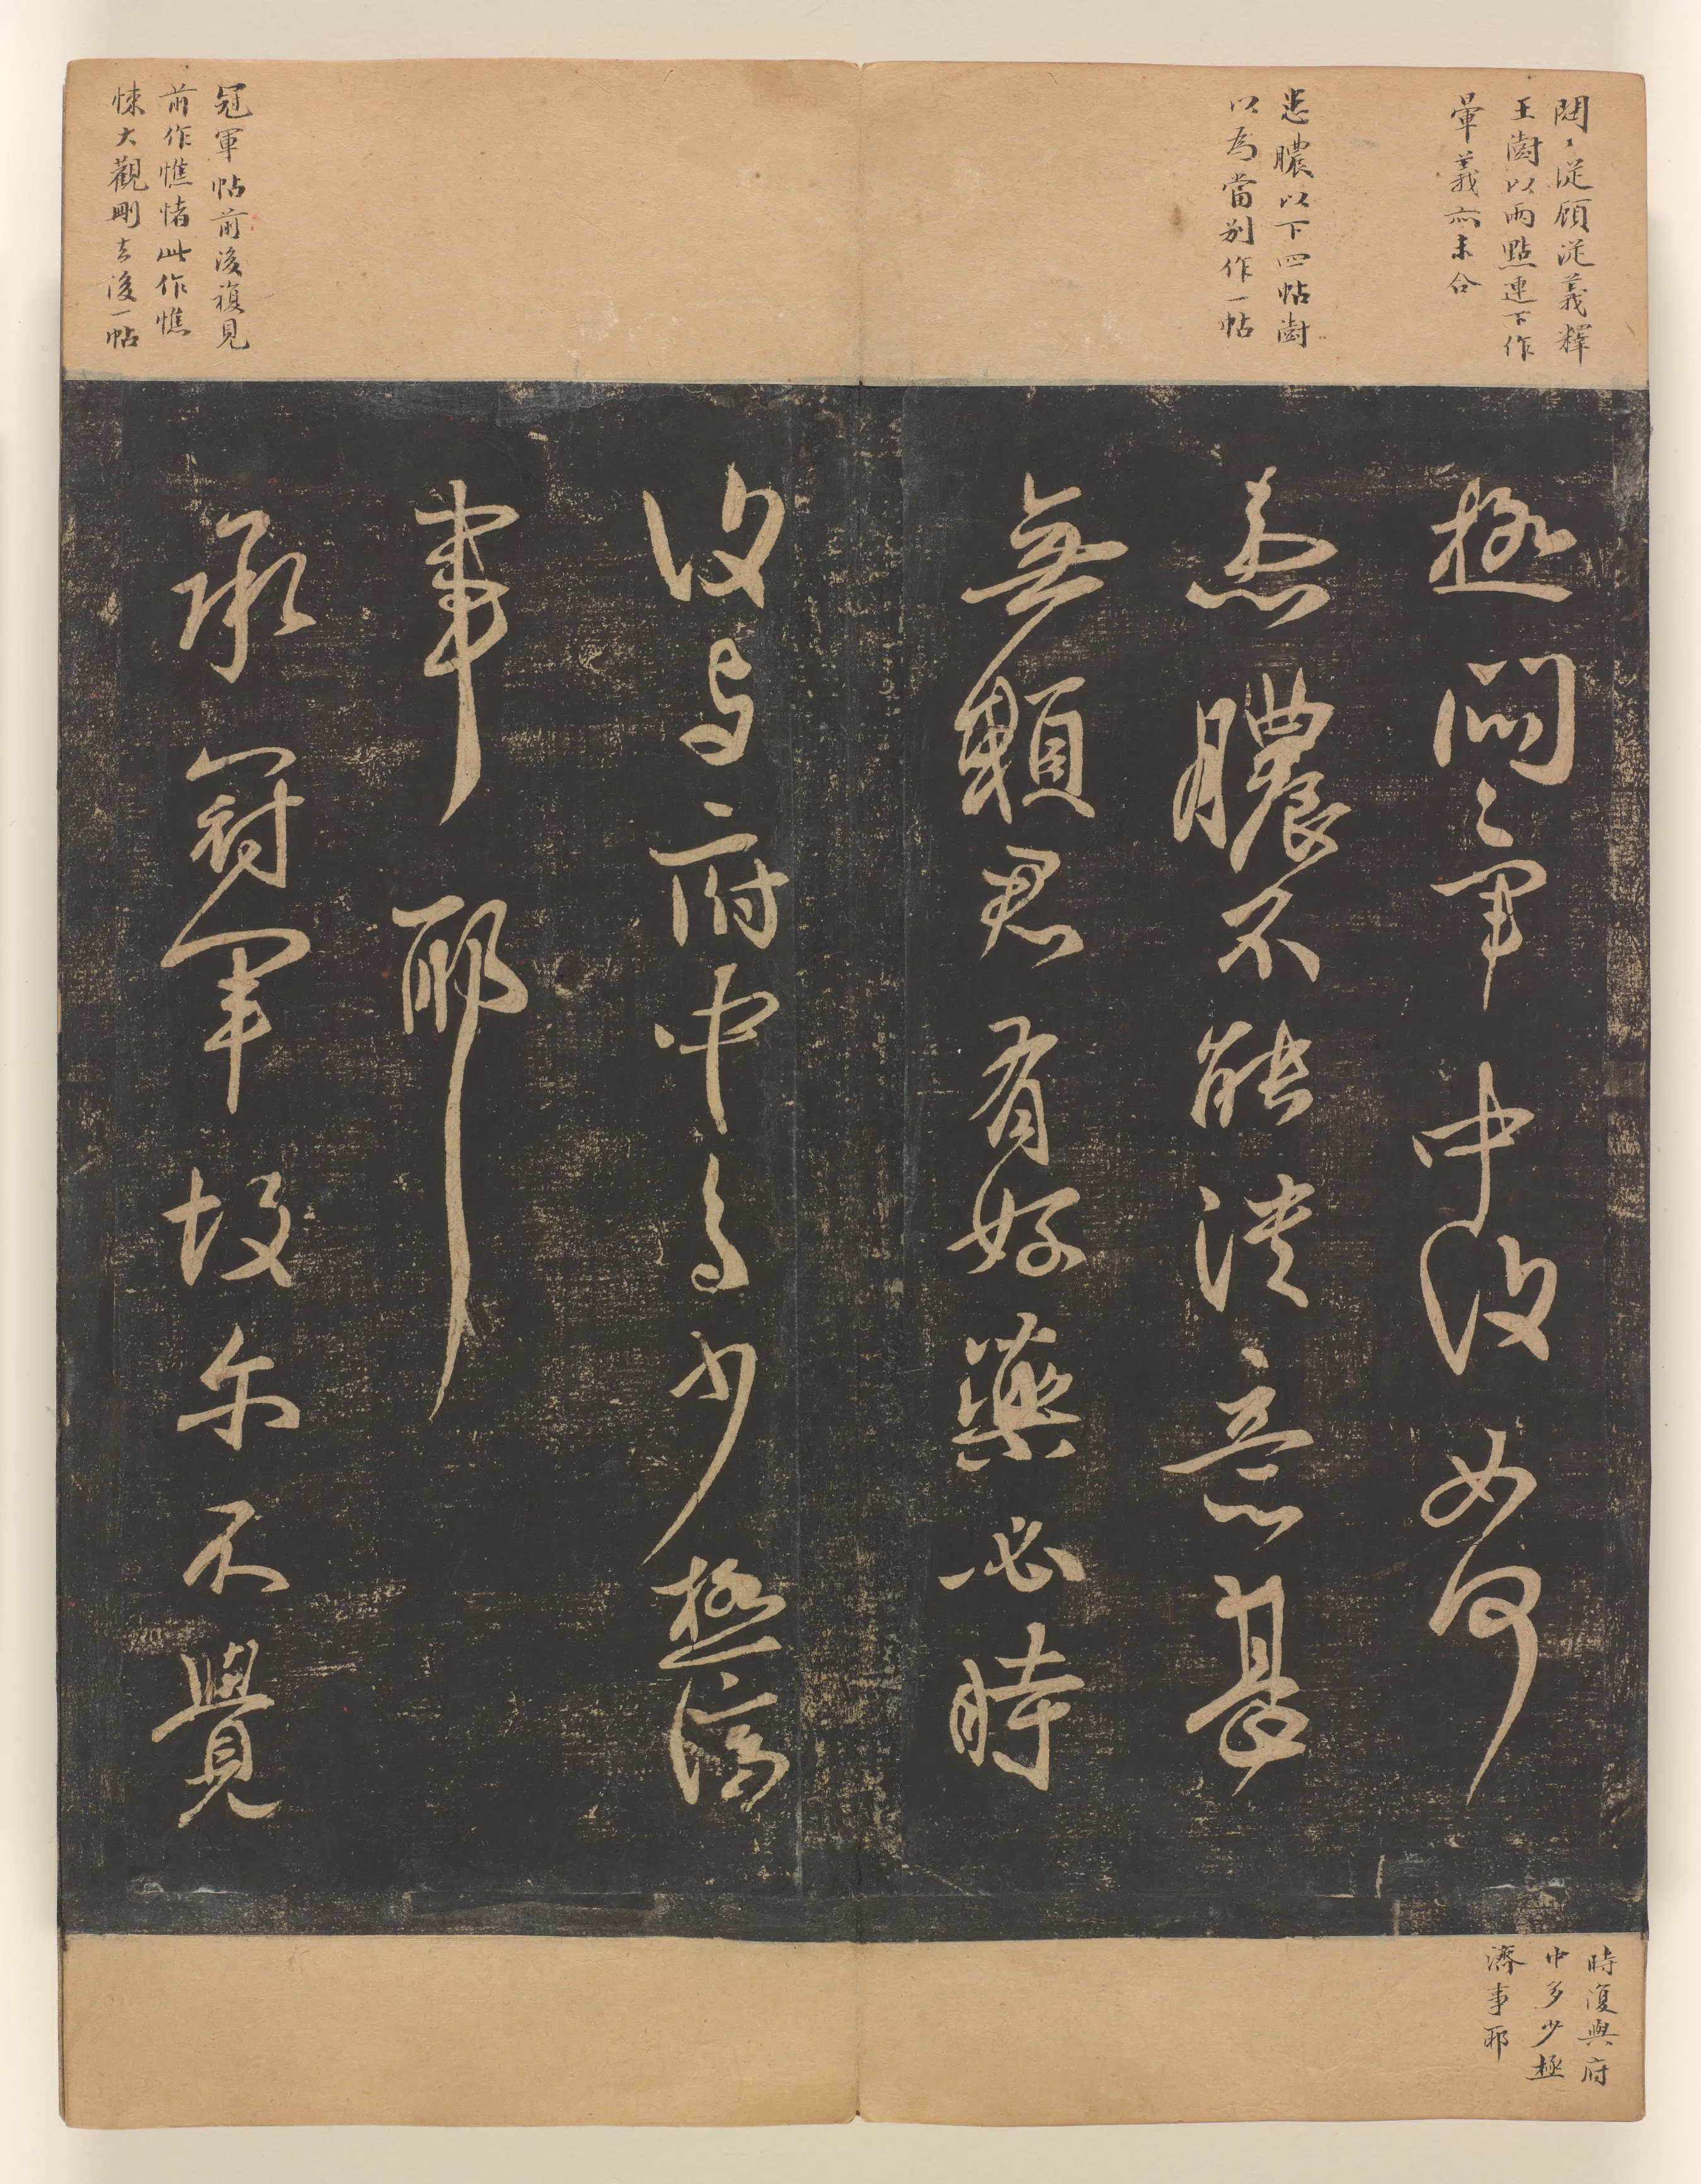 悶〻從顧從義釋
王澍以兩點連下作
暈義亦未合
患膿以下四帖澍
以為當别作一帖
冠軍帖前後複見
前作憔此作憔
悚大觀刪去後一帖
極悶〻軍中復如何
患膿不能潰意甚
無賴君有好藥必時
復與府中多少極濟
事耶
承冠軍故爾不覺
時復與府
中多少極
濟事耶